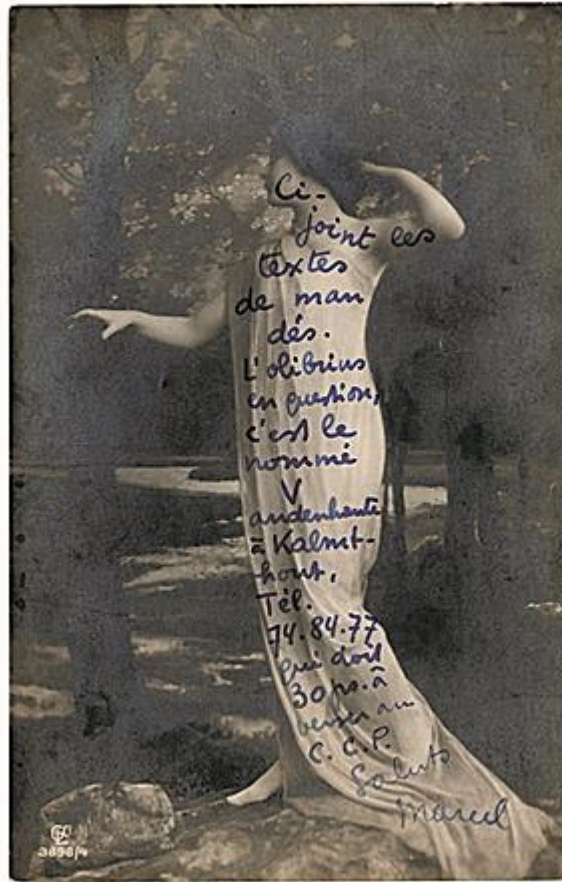 Ci-
joint les
textes
de man
dés.
L'olibrius
en question,
c'est le
nommé
V
andenhaute
à Kalmt-
hout,
Tél.
74.84.77
qui doit
30 frs. à
verser au
C.C.P.
Saluts
Marcel
3898/4